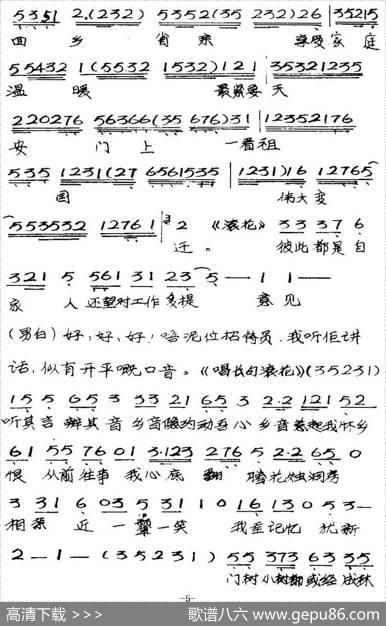 5351 2.(232) 5352(35 232)26 | 35215
回 乡 省亲 享受 家 庭
55432 1(5532 1532)121 | 35321235
温 暖 最紧要 天
220276 56366(35 676)31 | 12352176
安 门 上 一看祖
535 1231(27 6561535 | 1231)16 12765
国 伟大变
553532 12761 | 2 《滚花》 33 37 6
迁。 彼此都是自
321 5 561 31 23 5 — 1 1 —
家 人 还望对工作多提 意 见
(男白)好,好,好!唔 位招待员,我听佢讲
话,似有开平嘅口音。《唱长句滚花》(35231)
15 5 65 3 33 21 65 3 2.2 121 52
听其言 辨其 音 乡音 约动吾心 乡音 我怀乡
61 55 76 01 3.123 276 5 2.2 65 0
恨 从前往事 我心底 翻 腾 花烛洞房
3 31 6 03 5 31 1 0 16 13 0 53 —
相亲 近 一颦一笑 我至记忆 犹新
2 — 1 — (35231) 55 373 63 35
门树小树都或经成秋
-5-
高清下载 >>>
歌谱八六 www.gepu86.com